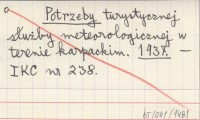 Potrzeby turystycznej
służby meteorologicznej w
terenie karpackim. 1937. —
IKC nr 238.